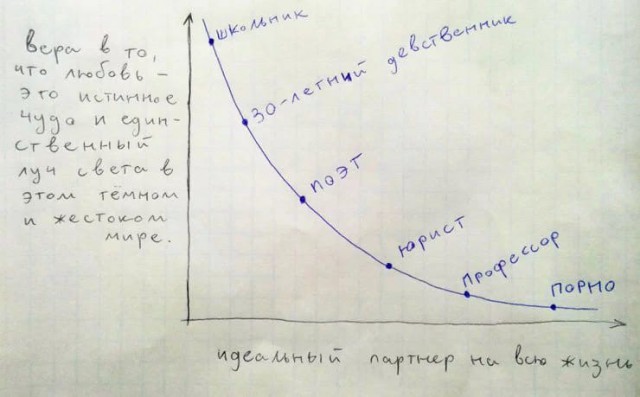 вера в то,
что любовь –
это истинное
чудо и един-
ственный
луч света в
этом тёмном
и жестоком
мире.
школьник
30-летний девственник
поэт
юрист
профессор
порно
идеальный партнер на всю жизнь